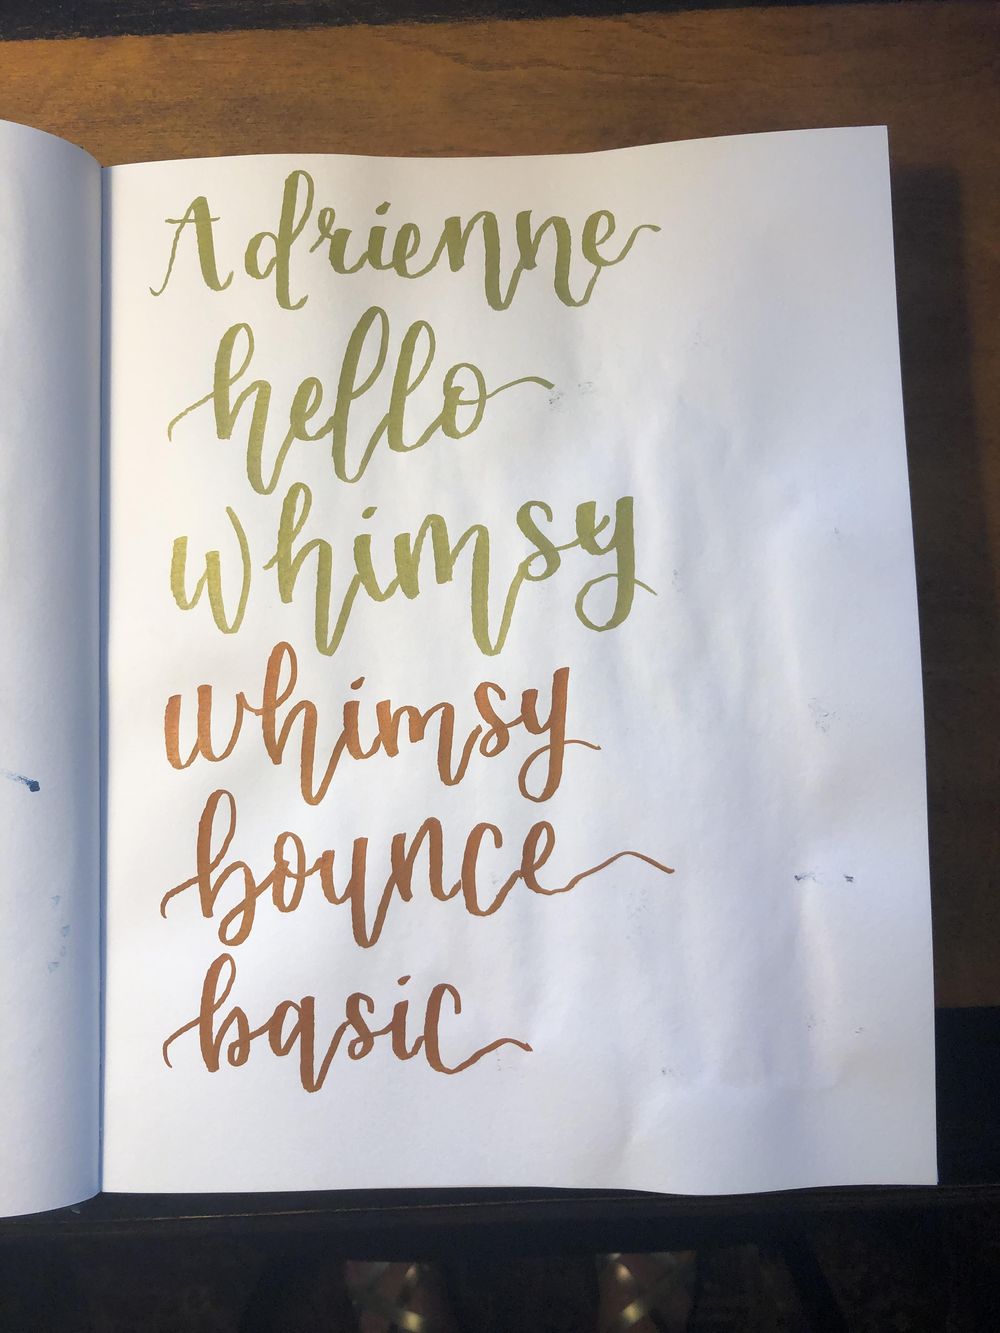 Adrienne
hello
whimsy
whimsy
bounce
basic